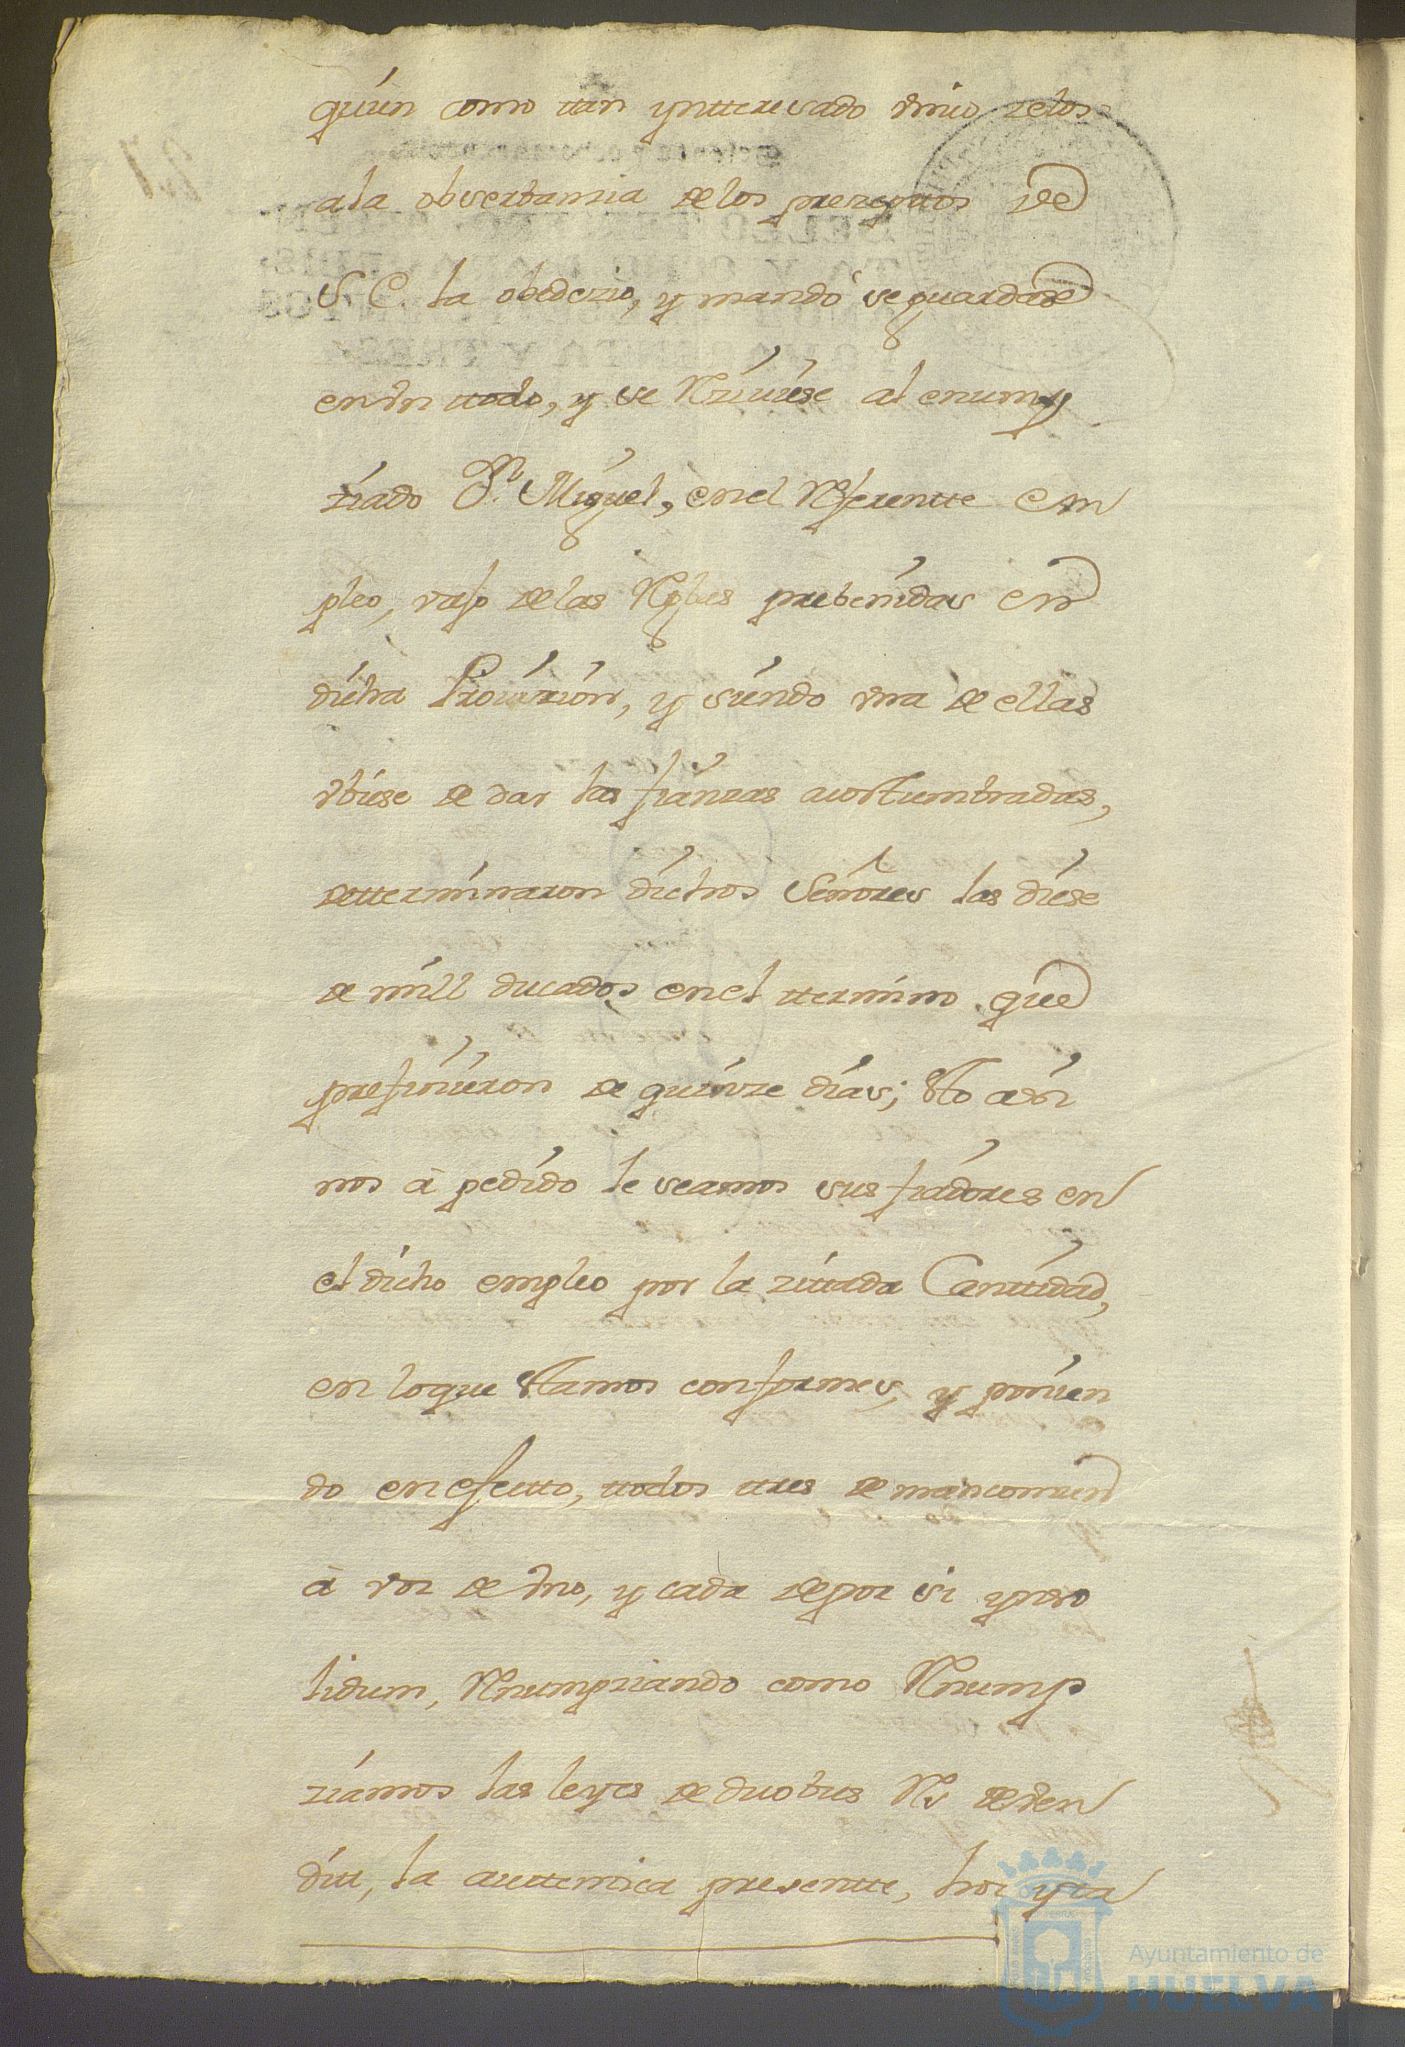 quien como tan yntteresado vnico zelos
a la obserbanzia de los prezeptos de
S. E. la obedezio, y mandó se guardase
en vn ttodo, y se Rziuiese al enump
ziado Dn. Miguel, en el Rferentte em
pleo, vajo de las Rglas prebenidas en
dicha Prouizion, y siendo vna de ellas
vbiese de dar las fianzas acostumbradas,
detterminaron dichos Señores las diese
de mill ducados en el ttermino que
prefinieron de quinze dias; 
nos à pedido le seamos sus fiadores en
el dicho empleo por la zittada Canttidad,
en loque Stamos conformes, y ponien
do en efectto, ttodos ttres de mancomun
à voz de vno, y cada de por si ynso
lidum, Rnumpziando como Rnump
ziamos las leyes de duobus Rs deven
di, la auttenica presentte, hoc yta
Ayuntamiento de
HUELVA